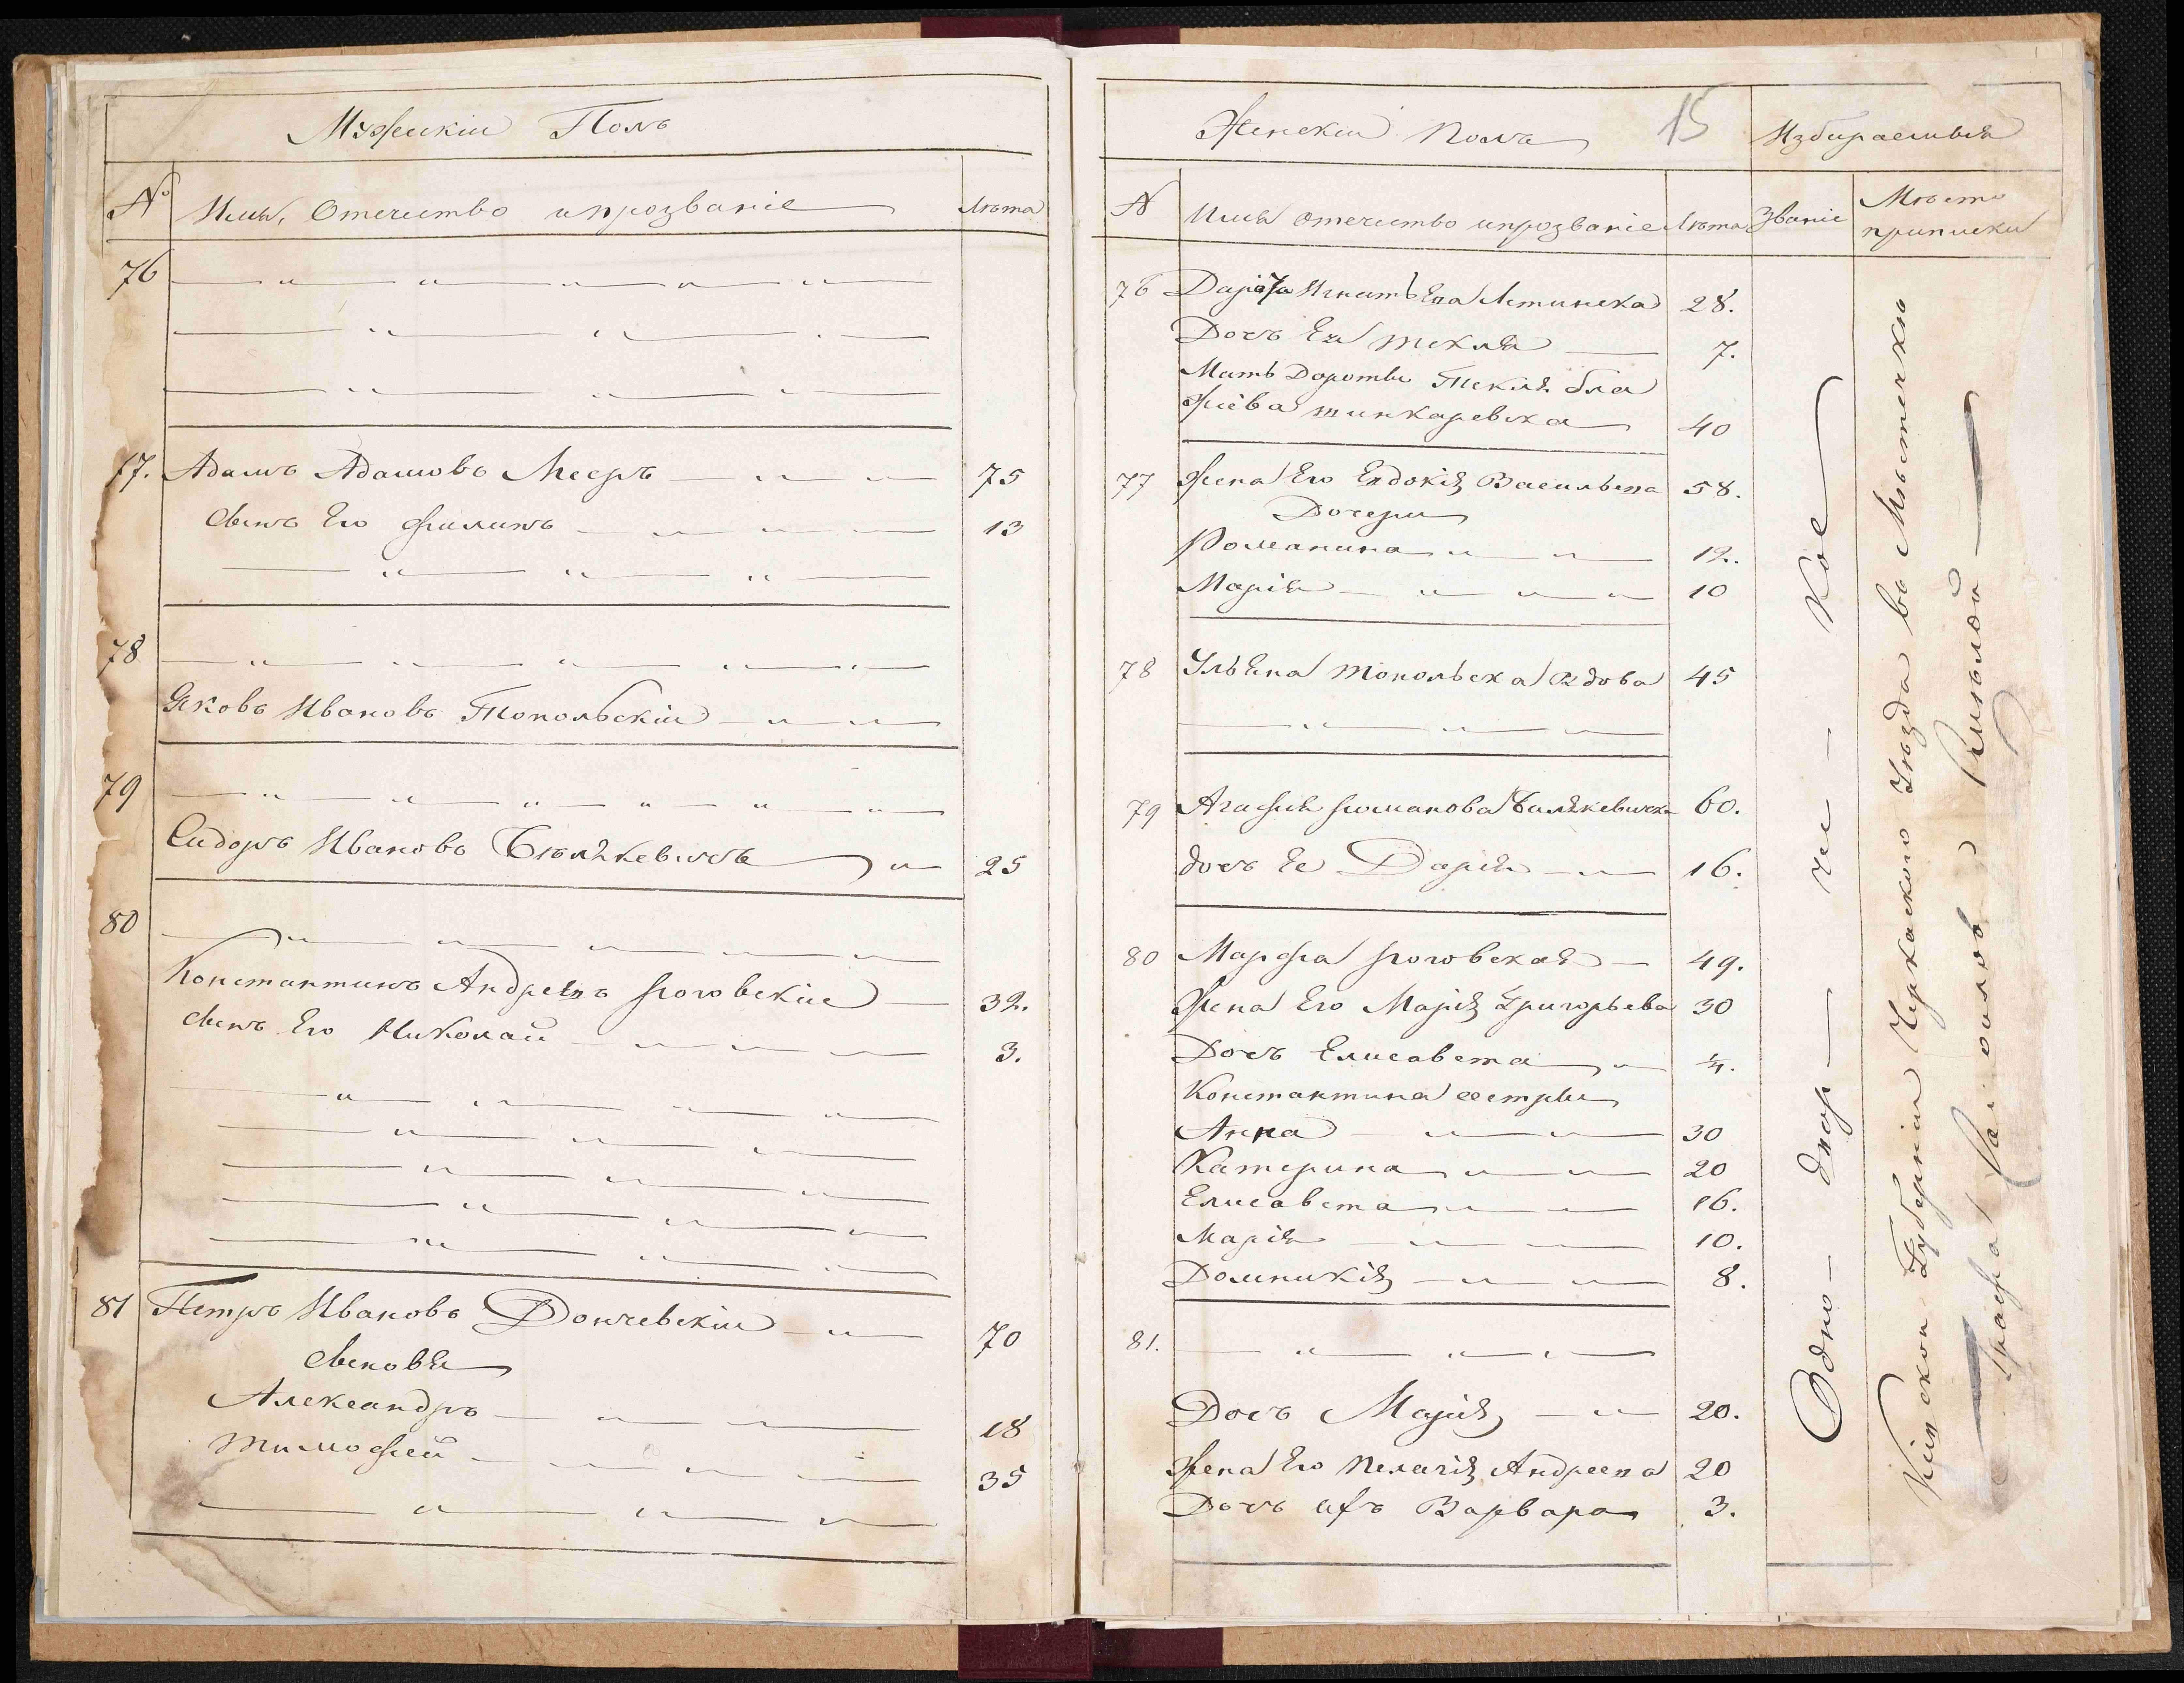 Мужескій Полъ
№ Имя, Отечество ипрозваніе Лѣта
76
77. Адамъ Адамовъ Мееръ 75
Сынъ Его Филипъ 13
78
Яковъ Ивановъ Топольскій
79
Сидоръ Ивановъ Бѣлякевичъ 25
80
Константинъ Андреевъ Роговскій 32.
Сынъ Его Николай 3.
81 Петръ Ивановъ Дончевскій 70
Сыновя
Александръ 18
Тимофей 35
Женскій Полъ 15 Избираемыя
№ Имя отечество ипрозваніе Лѣта Званіе Мѣсто приписки
76 28.
Дочъ Ея Текля 7.
Мать Дороты Текля Бла
жіева 40
77 Жена Его Евдокія Васильева 58.
Дочери
Романина 12.
Марія 10
78 Ульяна Топольска вдова 45
79 Агафия Романова Билякевичка 60.
дочъ Ее Дарія 16.
80 Марфа Роговская 49.
Жена Его Марія Григорьева 30
Дочъ Елисавета ¼.
Константина сестры
Анна 30
Катерина 20
Елисавета 16.
Марія 10.
Домникія 8.
81.
Дочъ Марія 20.
Жена Его Пелагія Андреева 20
Дочъ ихъ Варвара 3.
Одно - двор - че - кое
Кіевской Губерніи Черкаского Уѣзда въ Мѣстечкѣ
Графа Самойлова Смѣлой